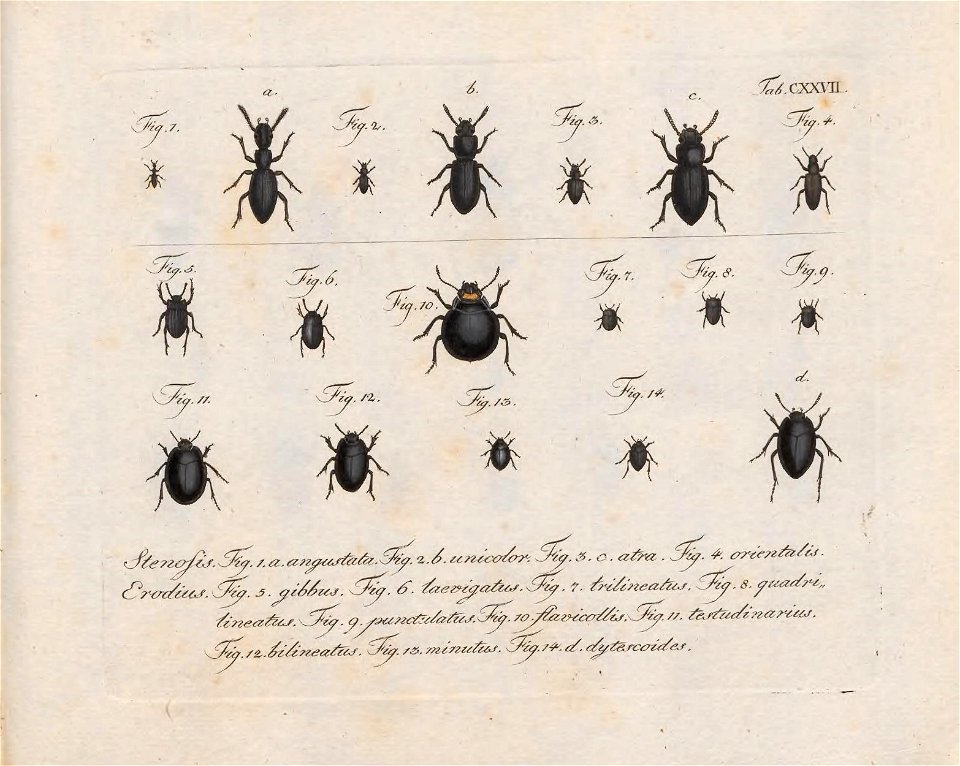 Tab. CXXVII.
a. b. c.
Fig. 1. Fig. 2. Fig. 3. Fig. 4.
Fig. 5. Fig. 6. Fig. 10. Fig. 7. Fig. 8. Fig. 9.
Fig. 11. Fig. 12. Fig. 13. Fig. 14. d.
Stenoſis. Fig. 1. a. angustata. Fig. 2. b. unicolor. Fig. 3. c. atra. Fig. 4. orientalis.
Erodius. Fig. 5. gibbus. Fig. 6. laevigatus. Fig. 7. trilineatus. Fig. 8. quadri„
lineatus. Fig. 9. punctulatus. Fig. 10. flavicollis. Fig. 11. testudinarius.
Fig. 12. bilineatus. Fig. 13. minutus. Fig. 14. d. dytescoides.